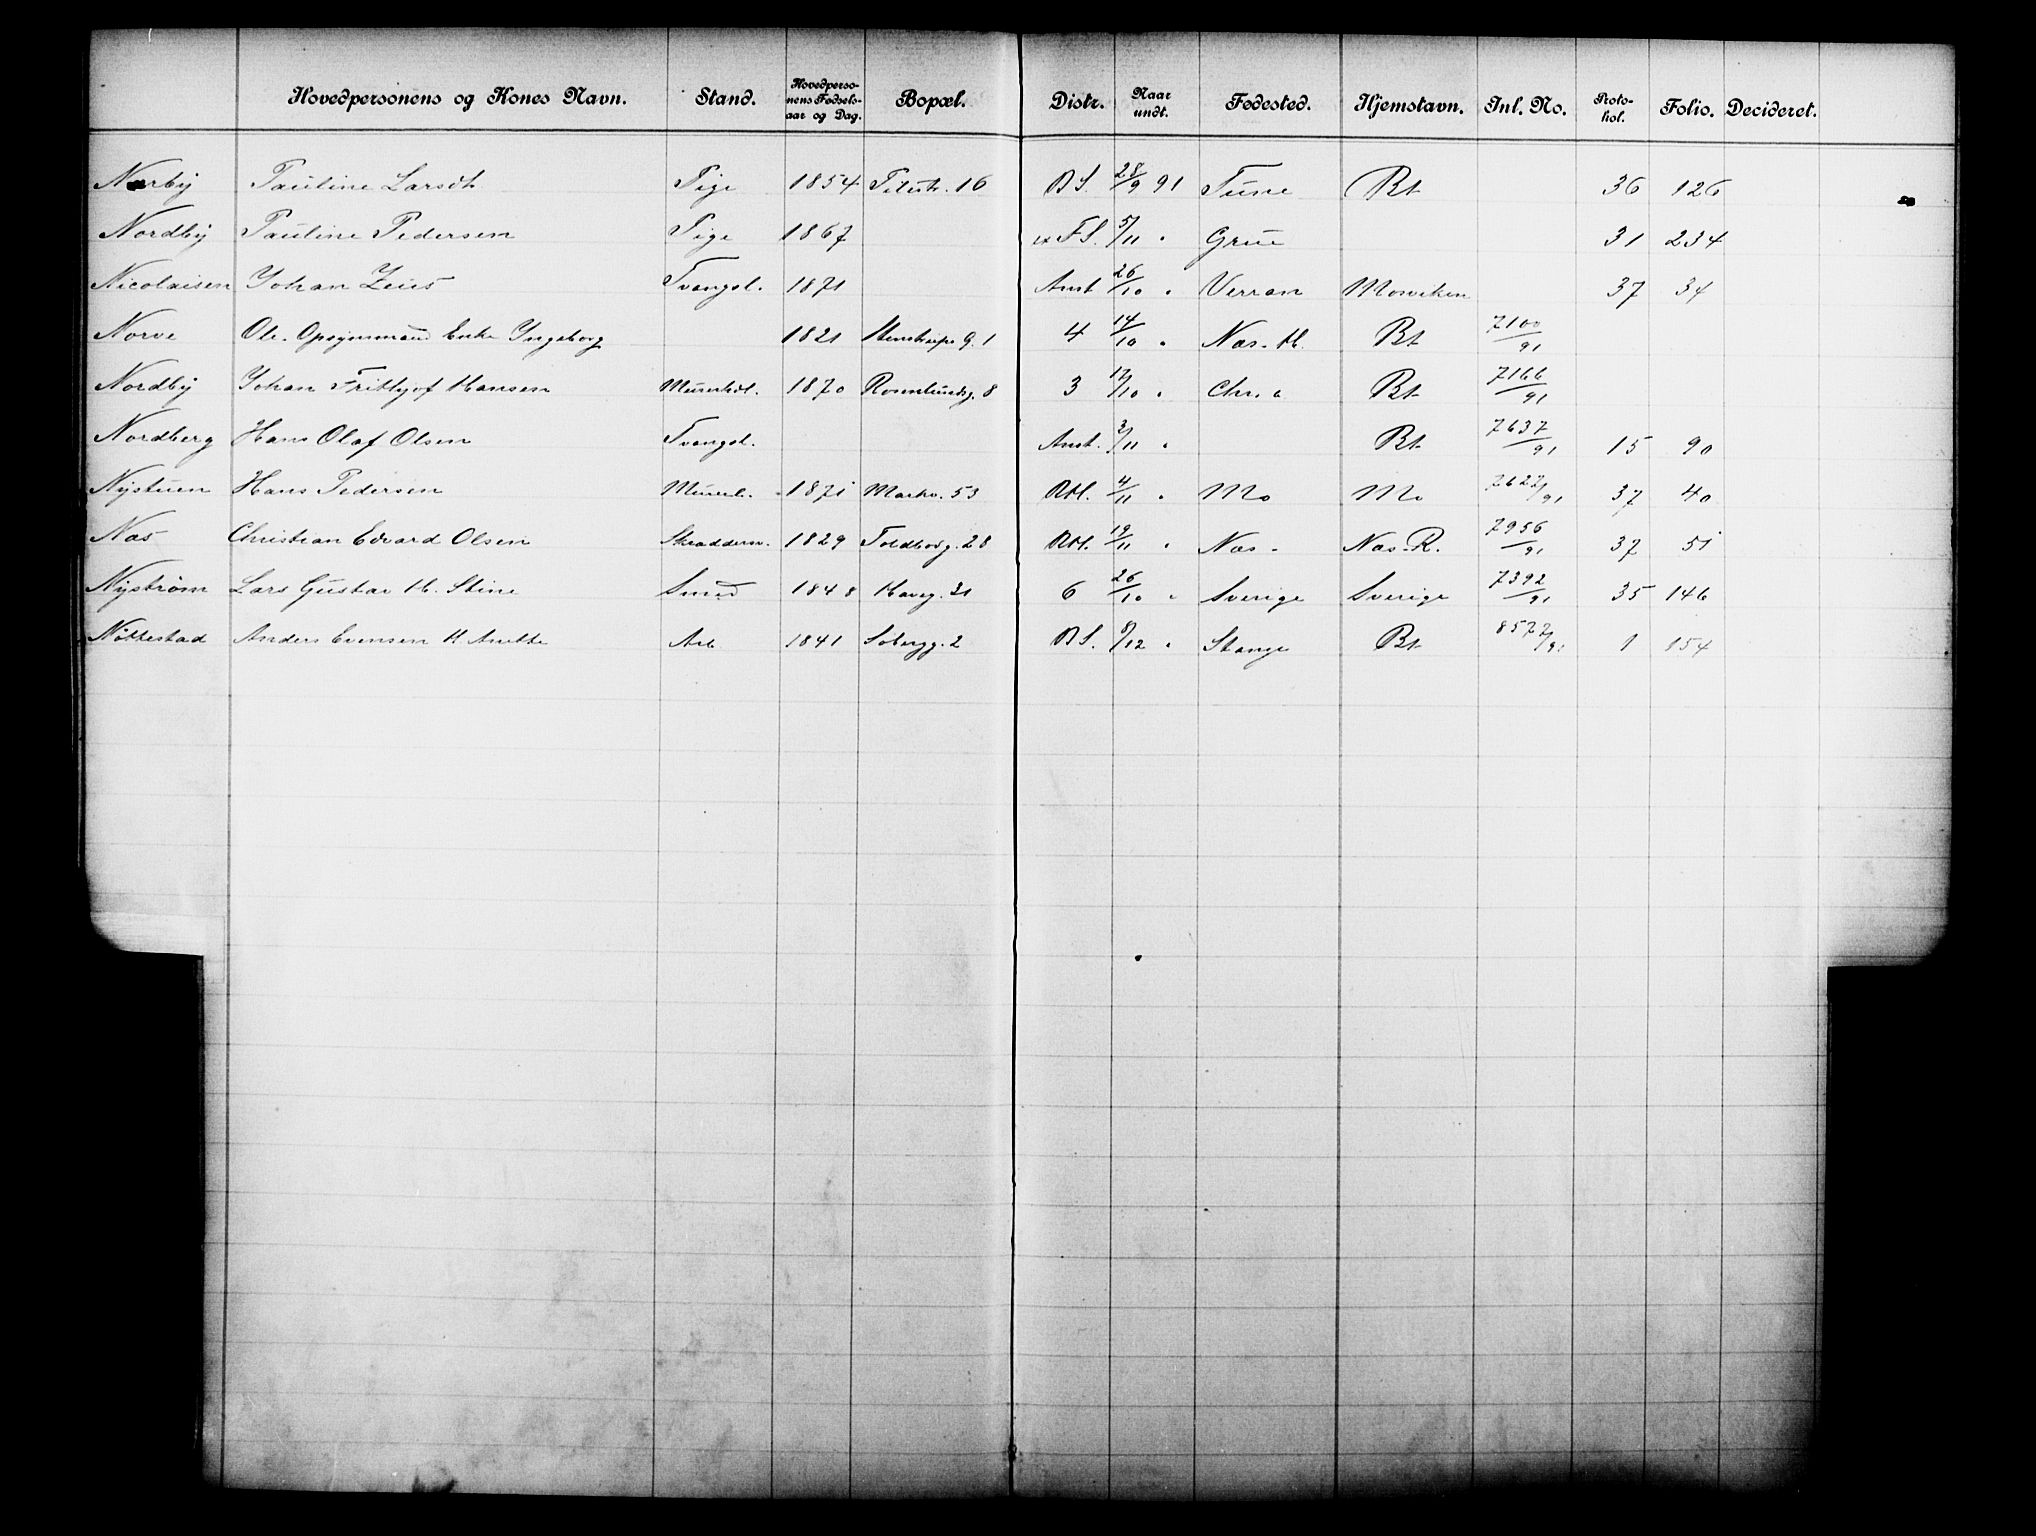 Hovedpersonens og Kones Navn. Stand. Hovedperso-nens Fødsels-aar og Dag. Bopæl. Distr. Naar undt. Fødested. Hjemstavn. Inl. No. Proto-kol. Folio. Decideret.
Nærby Pauline Larsdt Pige 1854 Tilestr. 16 BS. 28/9 91 Tune Bt 36 126
Nordby Pauline Pedersen Pige 1867 FS. 5/11 " Grue 31 234
Nicolaisen Johan Zeus Tvangsl. 1871 Anst 26/10 " Verran Mosviken 37 34
Norve Ole. Opsynsmand Enke Ingeborg 1821 Stenstrups g. 1 4 14/10 " Næs. H. Bt 7100/91
Nordby Johan Frithjof Hansen Murerhdl. 1870 Rosenlundsg. 8 3 17/10 " Chr. a Bt 7166/91
Nordberg Hans Olaf Olsen Tvangsl. Anst. 3/11 " Bt 7637/91 15 90
Nystuen Hans Pedersen Murerl. 1871 Markv. 53 RH. 4/11 " Mo Mo 7627/91 37 40
Næs Christian Edvard Olsen Skræddersv. 1829 Toldbodg. 28 RH. 19/11 " Næs. Næs. R. 7956/91 37 51
Nyström Lars Gustav H. Stine Smed 1848 Haveg. 21 6 26/10 " Sverige Sverige 7392/91 35 146
Nöttestad Anders Evensen H Anette Arb 1841 Sobergg. 2 BS. 8/12 " Stange Bt 8577/91 1 154